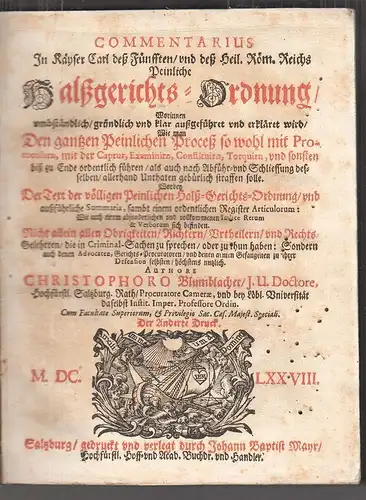 COMMENTARIUS
In Kayser Carl deß Fünfften/ vnd deß Heil. Röm. Reichs
Peinliche
Halßgerichts-Ordnung/
Worinnen
vmbständlich/ gründlich vnd klar außgeführet vnd erkläret wird/
Wie man
Den gantzen Peinlichen Proceß so wohl mit Pro-
movirn, mit der Captur, Examinirn, Confiscirn, Torquirn, vnd sonsten
biß zu Ende ordentlich führen/ als auch nach Abführ- vnd Schliessung des-
selben/ allerhand Unthaten gebürlich straffen solle.
Worbey
Der Text der völligen Peinlichen Halß-Gerichts-Ordnung/ vnd
außführliche Summaria, sambt einem ordentlichen Register Articulorum:
Wie auch einem absonderlichen vnd vollkommenen Index Rerum
& Verborum sich befinden.
Nicht allein allen Obrigkeiten/ Richtern/ Vrtheilern/ vnd Rechts-
Gelehrten/ die in Criminal-Sachen zu sprechen/ oder zu thun haben: Sondern
auch denen Advocaten, Gerichts-Procuratoren/ vnd denen armen Gefangenen zu ihrer
Defension selbsten/ höchstens nutzlich.
AUTHORE
CHRISTOPHORO Blumblacher/ J. U. Doctore,
Hochfürstl. Saltzburg. Rath/ Procuratore Cameræ, vnd bey Löbl. Universität
daselbst Instit. Imper. Professore Ordin.
Cum Facultate Superiorum, & Privilegio Sac. Cæs. Majest. Speciali.
Der Anderte Druck.
M. DC. LXXVIII.
Saltzburg/ gedruckt vnd verlegt durch Johann Baptist Mayr/
Hochfürstl. Hoff- vnd Acad. Buchdr. vnd Handler.